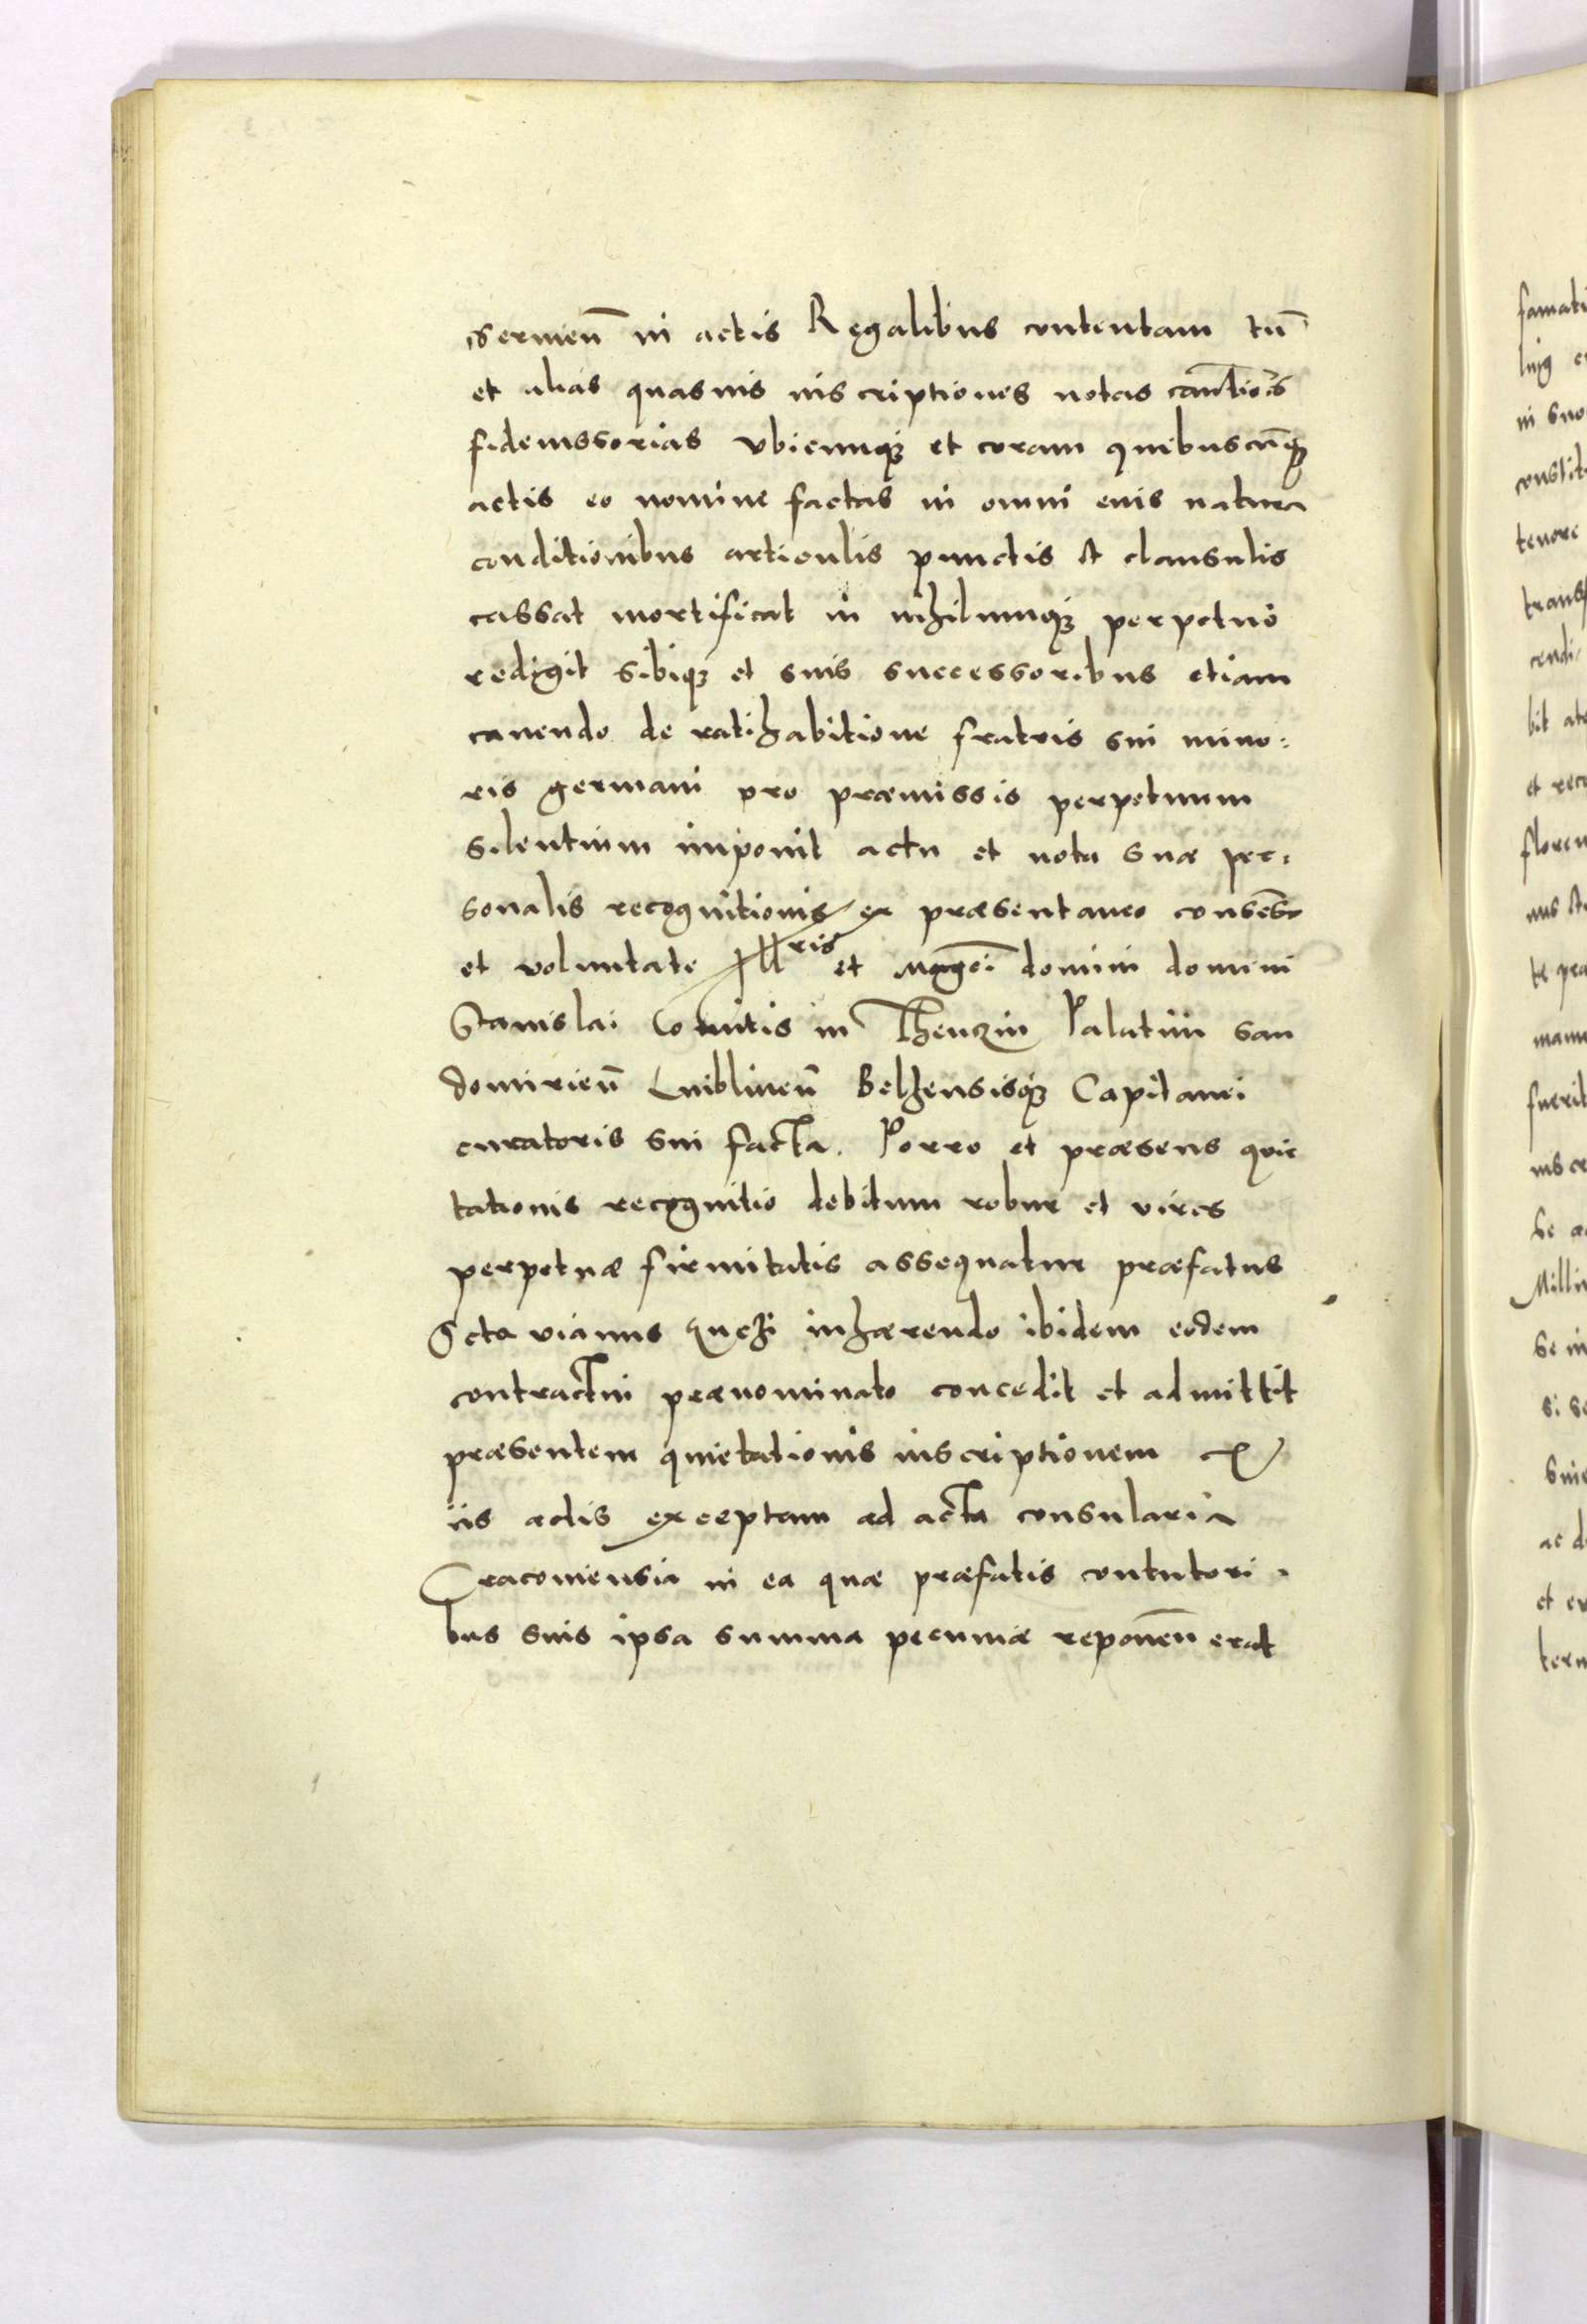 servien̄ in actis Regalibus contentam tū
et alias quasvis inscriptiones notas caut̄iōēs
fideiussorias ubicunq₃ et coram quibuscūq₃
actis eo nomine factas in omni eius natura
conditionibus articulis punctis et clausulis
cassat mortificat in nihilumq₃ perpetuo
redigit sibiq₃ et suis successoribus etiam
cavendo de ratihabitione fratris sui mino:
ris germani pro præmissis perpetuum
silentium imponit actu et nota suæ per:
sonalis recognitionis ex præsentaneo consēsu
et voluntate Illris et Magci domini domini
Stanislai Comitis in Thenzin Palatini san
domirien̄ Lublinen̄ Belzensisq₃ Capitanei
curatoris sui facta. Porro et præsens quie
tationis recognitio debitum robur et vires
perpetuæ firmitatis assequatur præfatus
Octavianus Guczi inhærendo ibidem eodem
contractui prænominato concedit et admittit
præsentem quietationis inscriptionem ex
iis actis exceptam ad acta consularia
Cracoviensia in ea quæ præfatis contutori:
bus suis ipsa summa pecuniæ reponen̄ erat
famati
in suo
constit
tenore
trans
cendi
bit at
et rec
floren
nus et
te præ
manu
fuerit
inscr
Millin
se in
si se
suis
ac d
et ex
term